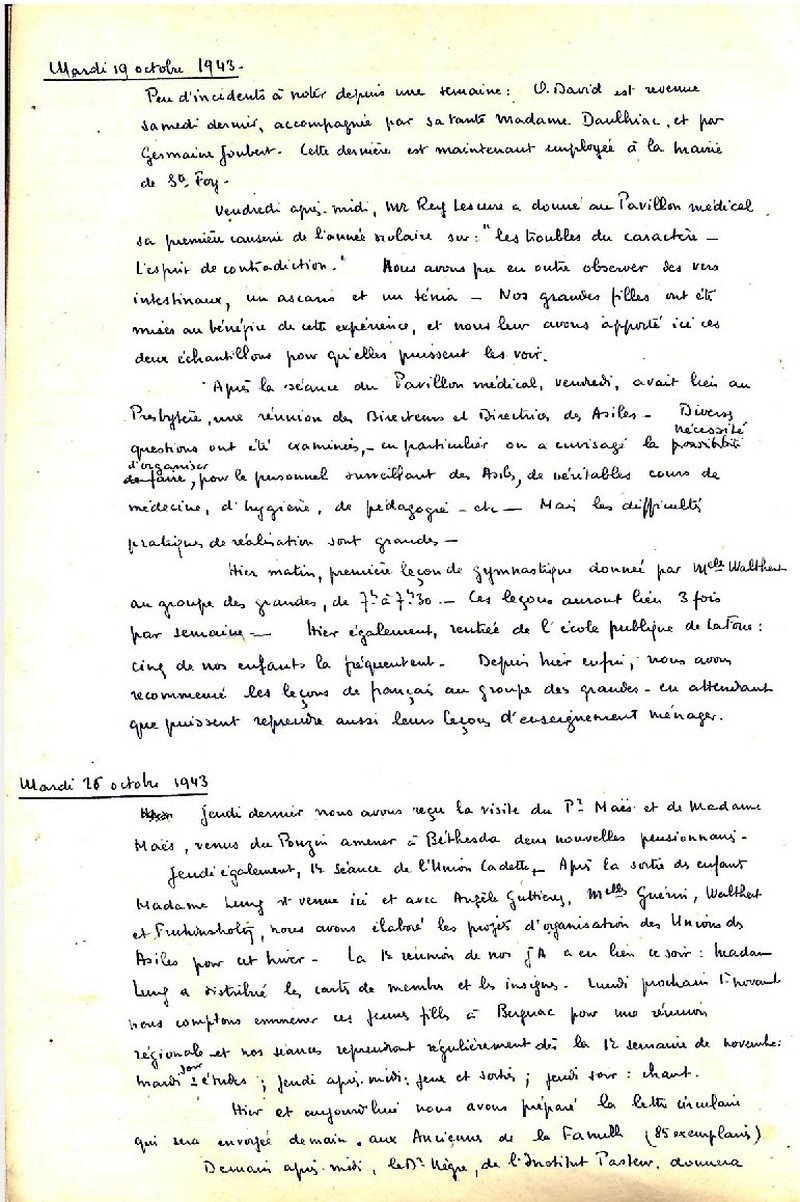 Mardi 19 octobre 1943.
Peu d'incidents à noter depuis une semaine : O. David est revenue
samedi dernier, accompagnée par sa tante Madame Daulhiac, et par
Germaine Joubert. Cette dernière est maintenant employée à la Mairie
de Ste Foy.
Vendredi après-midi, Mr Rey Lescure a donné au Pavillon médical
sa première causerie de l'année scolaire sur : "les troubles du caractère –
L'esprit de contradiction." Nous avons pu en outre observer des vers
intestinaux, un ascaris et un ténia – Nos grandes filles ont été
mises au bénéfice de cette expérience, et nous leur avons apporté ici ces
deux échantillons pour qu'elles puissent les voir.
Après la séance du Pavillon médical, vendredi, avait lieu au
Presbytère, une réunion des Directeurs et Directrices des Asiles – Diverses
nécessité
questions ont été examinées, – en particulier on a envisagé la possibilité
d'organiser
d'en faire, pour le personnel surveillant des Asiles, de véritables cours de
médecine, d'hygiène, de pédagogie – etc – Mais les difficultés
pratiques de réalisation sont grandes –
Hier matin, première leçon de gymnastique donnée par Melle Walthert
au groupe des grandes, de 7h à 7h30 – Ces leçons auront lieu 3 fois
par semaine – Hier également, rentrée de l'école publique de LaForce :
cinq de nos enfants la fréquentent. Depuis hier enfin, nous avons
recommencé les leçons de français au groupe des grandes – en attendant
que puissent reprendre aussi leurs leçons d'enseignement ménager.
Mardi 26 octobre 1943
Jeudi dernier nous avons reçu la visite du Pr Maës et de Madame
Maës, venus du Pouzin amener à Béthesda deux nouvelles pensionnaires –
Jeudi également, 1re séance de l'Union Cadette, – Après la sortie des enfants
Madame Leung est venue ici et avec Angèle Guttierez, Melles Guérin, Walthert
et nous avons élaboré les projets d'organisation des Unions des
Asiles pour cet hiver – La 1re réunion de nos JA a eu lieu ce soir : Madame
Leung a distribué les cartes de membres et les insignes – Lundi prochain 1er novembre
nous comptons emmener ces jeunes filles à Bergerac pour une réunion
régionale et nos séances reprendront régulièrement dès la 1re semaine de novembre :
soir
mardi : études ; jeudi après-midi : jeux et sorties ; jeudi soir : chant.
Hier et aujourd'hui nous avons préparé la lettre circulaire
qui sera envoyée demain aux Anciennes de la Famille (85 exemplaires)
Demain après-midi, le Dr Nègre, de l'Institut Pasteur, donnera